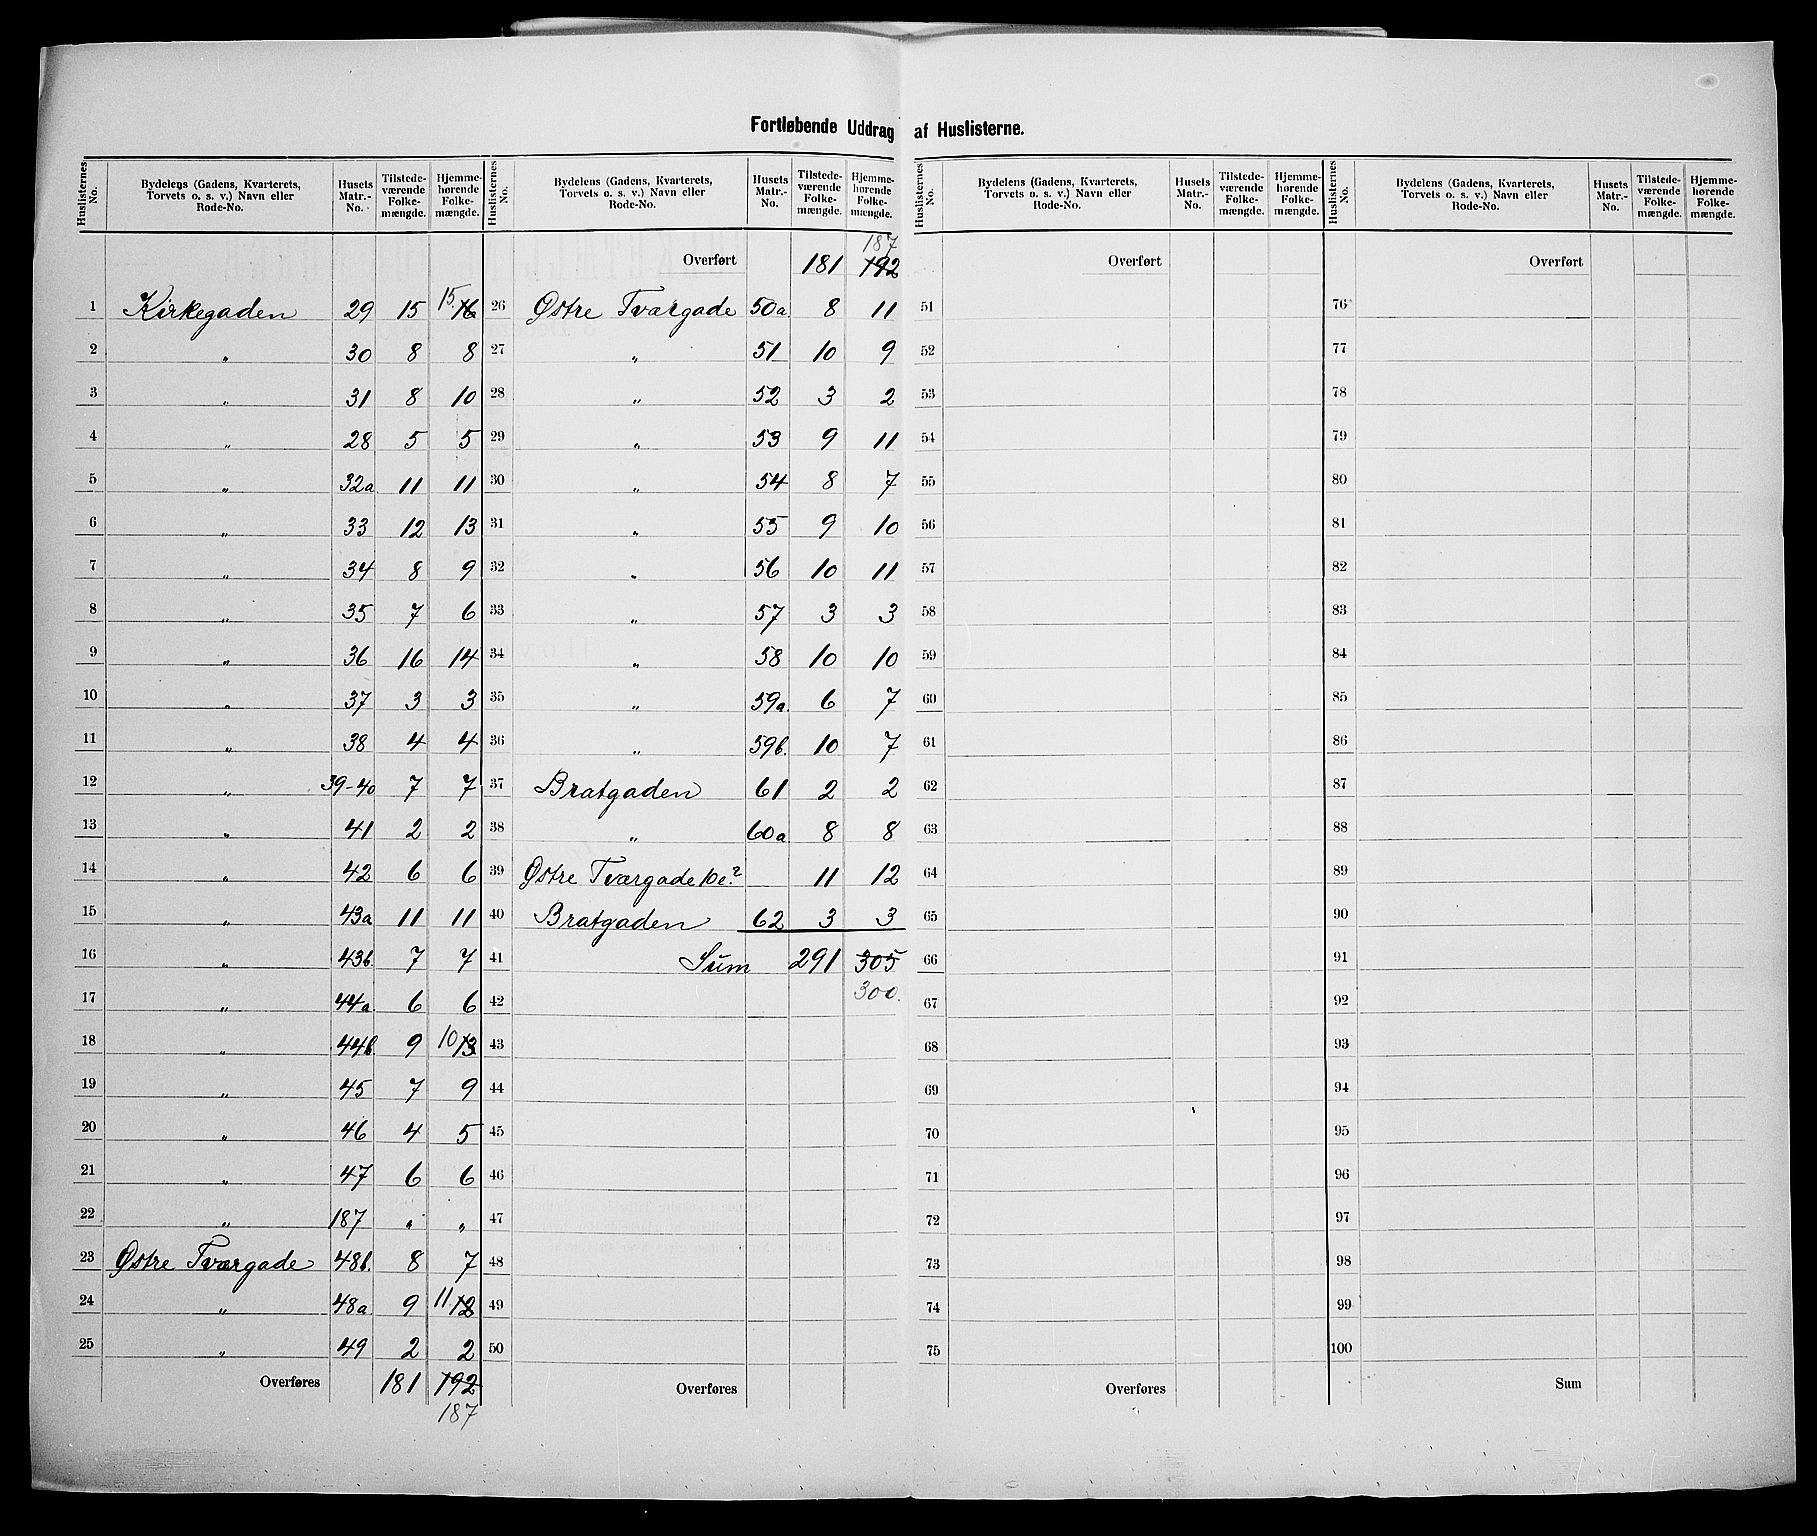 Fortløbende Uddrag af Huslisterne.
Huslisternes No. | Bydelens (Gadens, Kvarterets, Torvets o. s. v.) Navn eller Rode-No. | Husets Matr.-No. | Tilstede-værende Folke-mængde. | Hjemme-hørende Folke-mængde.
1 Kirkegaden 29 15 15. 16
2 „ 30 8 8
3 „ 31 8 10
4 „ 28 5 5
5 „ 32a. 11 11
6 „ 33 12 13
7 „ 34 8 9
8 „ 35 7 6
9 „ 36 16 14
10 „ 37 3 3
11 „ 38 4 4
12 „ 39-40 7 7
13 „ 41 2 2
14 „ 42 6 6
15 „ 43a 11 11
16 „ 43b. 7 7
17 „ 44a. 6 6
18 „ 44b. 9 10 13
19 „ 45 7 9
20 „ 46 4 5
21 „ 47 6 6
22 „ 187 „ „
23 Østre Tværgade 48b. 8 7
24 „ 48a. 9 11 12
25 „ 49 2 2
Overføres 181 192
187
Huslisternes No. | Bydelens (Gadens, Kvarterets, Torvets o. s. v.) Navn eller Rode-No. | Husets Matr.-No. | Tilstede-værende Folke-mængde. | Hjemme-hørende Folke-mængde.
187
Overført 181 192
26 Østre Tværgade 50a. 8 11
27 „ 51 10 9
28 „ 52 3 2
29 „ 53 9 11
30 „ 54 8 7
31 „ 55 9 10
32 „ 56 10 11
33 „ 57 3 3
34 „ 58 10 10
35 „ 59a. 6 7
36 „ 59b. 10 7
37 Bratgaden 61 2 2
38 „ 60a. 8 8
39 Østre Tværgade 10e.? 11 12
40 Bratgaden 62 3 3
41 Sum 291 305
42 300.
43
44
45
46
47
48
49
50
Overføres
Huslisternes No. | Bydelens (Gadens, Kvarterets, Torvets o. s. v.) Navn eller Rode-No. | Husets Matr.-No. | Tilstede-værende Folke-mængde. | Hjemme-hørende Folke-mængde.
Overført
51
52
53
54
55
56
57
58
59
60
61
62
63
64
65
66
67
68
69
70
71
72
73
74
75
Overføres
Huslisternes No. | Bydelens (Gadens, Kvarterets, Torvets o. s. v.) Navn eller Rode-No. | Husets Matr.-No. | Tilstede-værende Folke-mængde. | Hjemme-hørende Folke-mængde.
Overført
76
77
78
79
80
81
82
83
84
85
86
87
88
89
90
91
92
93
94
95
96
97
98
99
100
Sum